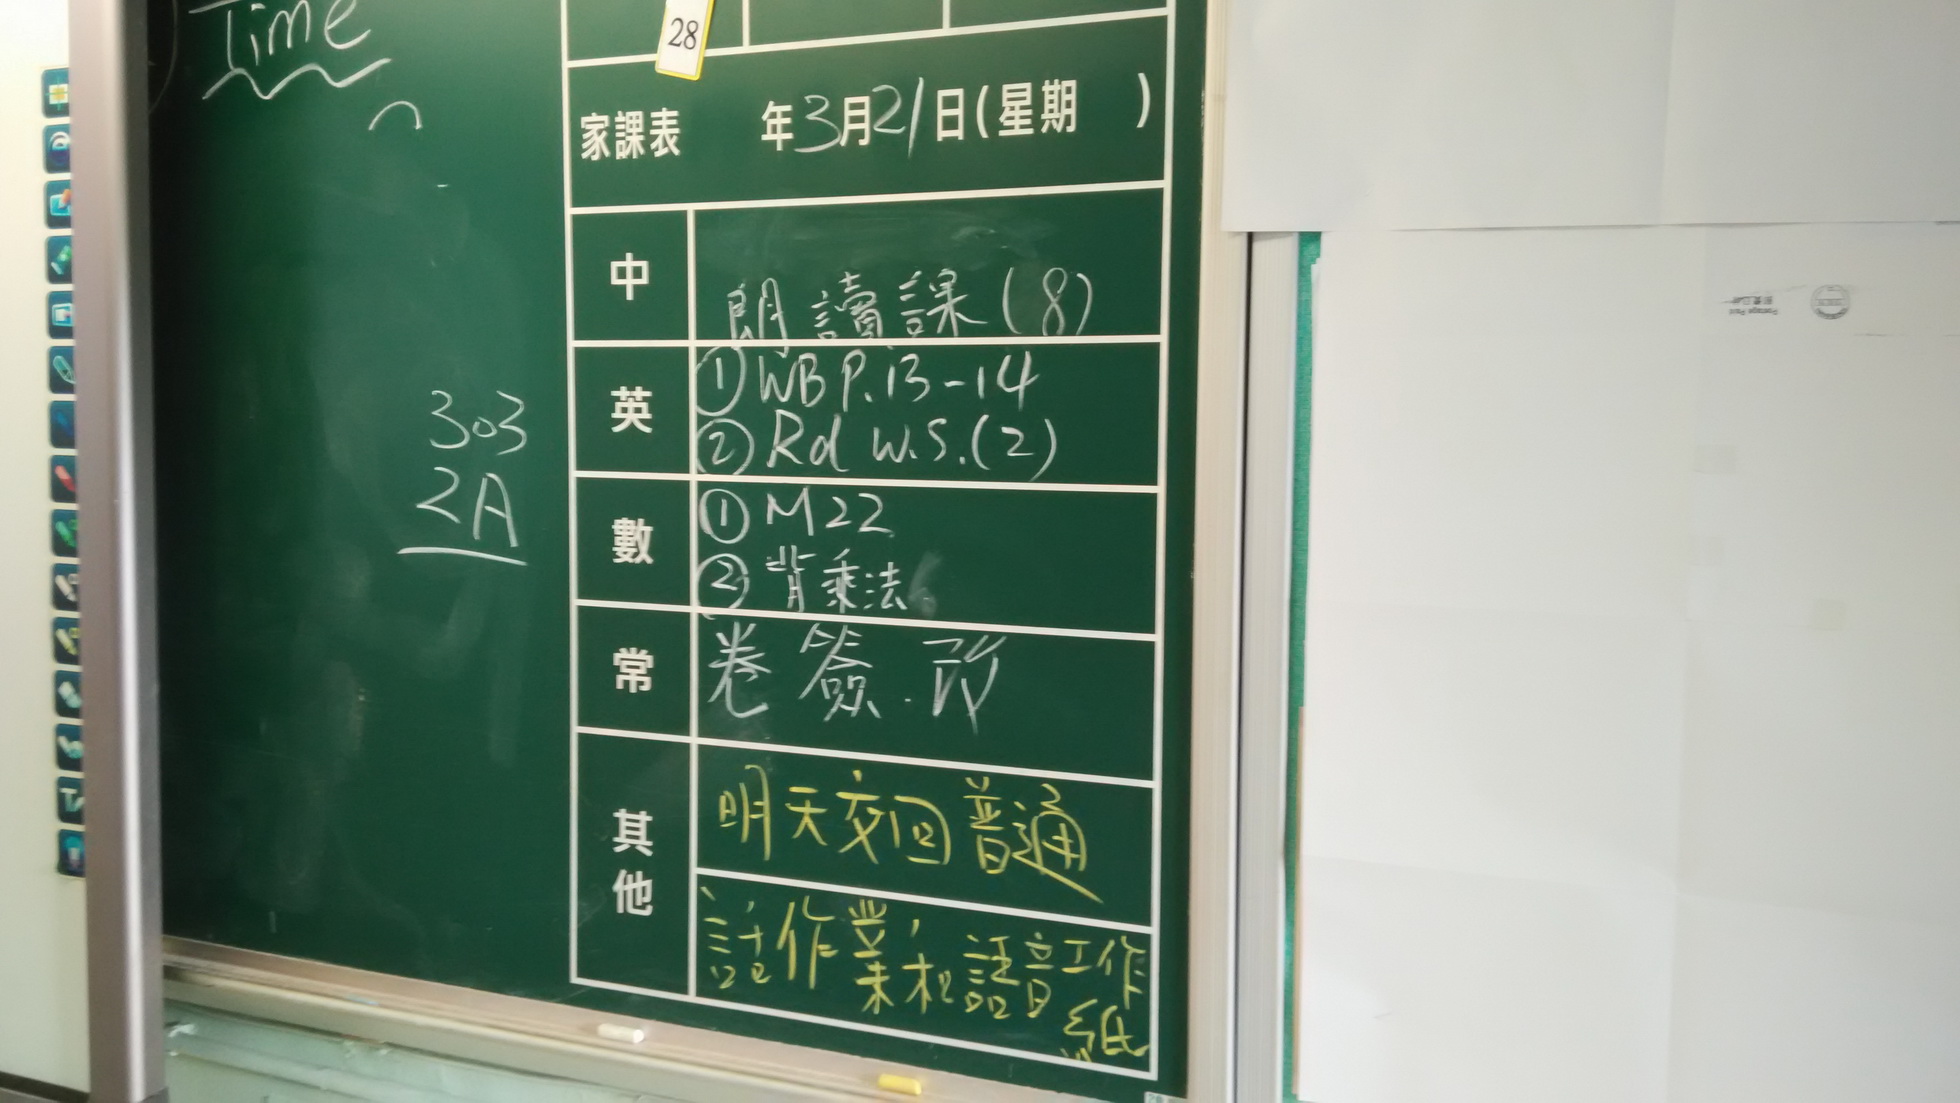 Time
28
家課表 年3月21日(星期 )
中
朗讀課(8)
英
①WB P.13-14
②Rd W.S.(2)
303
2A
數
①M22
②背乘法
常
卷簽.改
其他
明天交回普通
話作業,和語音工作
紙